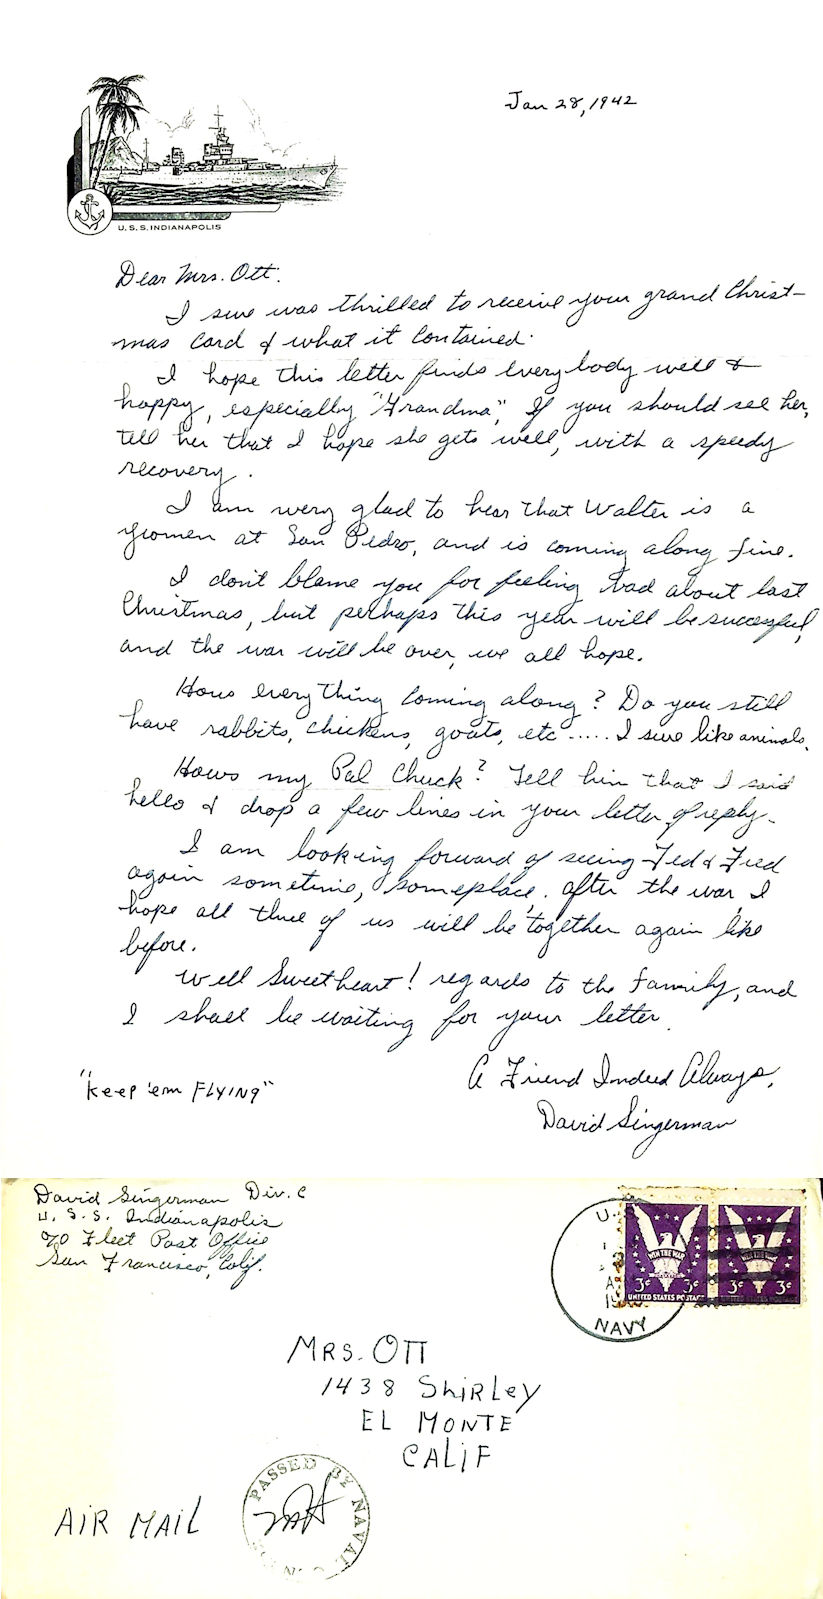 Jan 28, 1942
U.S.S. INDIANAPOLIS
Dear Mrs. Ott:
I sure was thrilled to receive your grand Christ-
mas Card & what it Contained.
I hope this letter finds everybody well &
happy, especially "Grandma", If you should see her,
tell her that I hope she gets well, with a speedy
recovery.
I am very glad to hear that Walter is a
yeomen at San Pedro, and is coming along fine.
I don't blame you for feeling bad about last
Christmas, but perhaps this year will be successful,
and the war will be over, we all hope.
Hows everything coming along? Do you still
have rabbits, chickens, goats, etc ..... I sure like animals.
Hows my Pal Chuck? Tell him that I said
hello & drop a few lines in your letter of reply.
I am looking forward of seeing Ted & Fred
again sometime, someplace. after the war, I
hope all three of us will be together again like
before.
Well Sweetheart! regards to the Family, and
I shall be waiting for your letter.
A Friend Indeed Always,
"Keep 'em FLYING"
David Singerman
David Singerman Div. C
U. S. S. Indianapolis
c/o Fleet Post Office
San Francisco, Calif.
U.S.
NAVY
WIN THE WAR
3¢ 3¢
UNITED STATES POSTAGE
WIN THE WAR
3¢ 3¢
UNITED STATES POSTAGE
MRS. OTT
1438 SHIRLEY
EL MONTE
CALIF
AIR MAIL
PASSED BY NAVAL